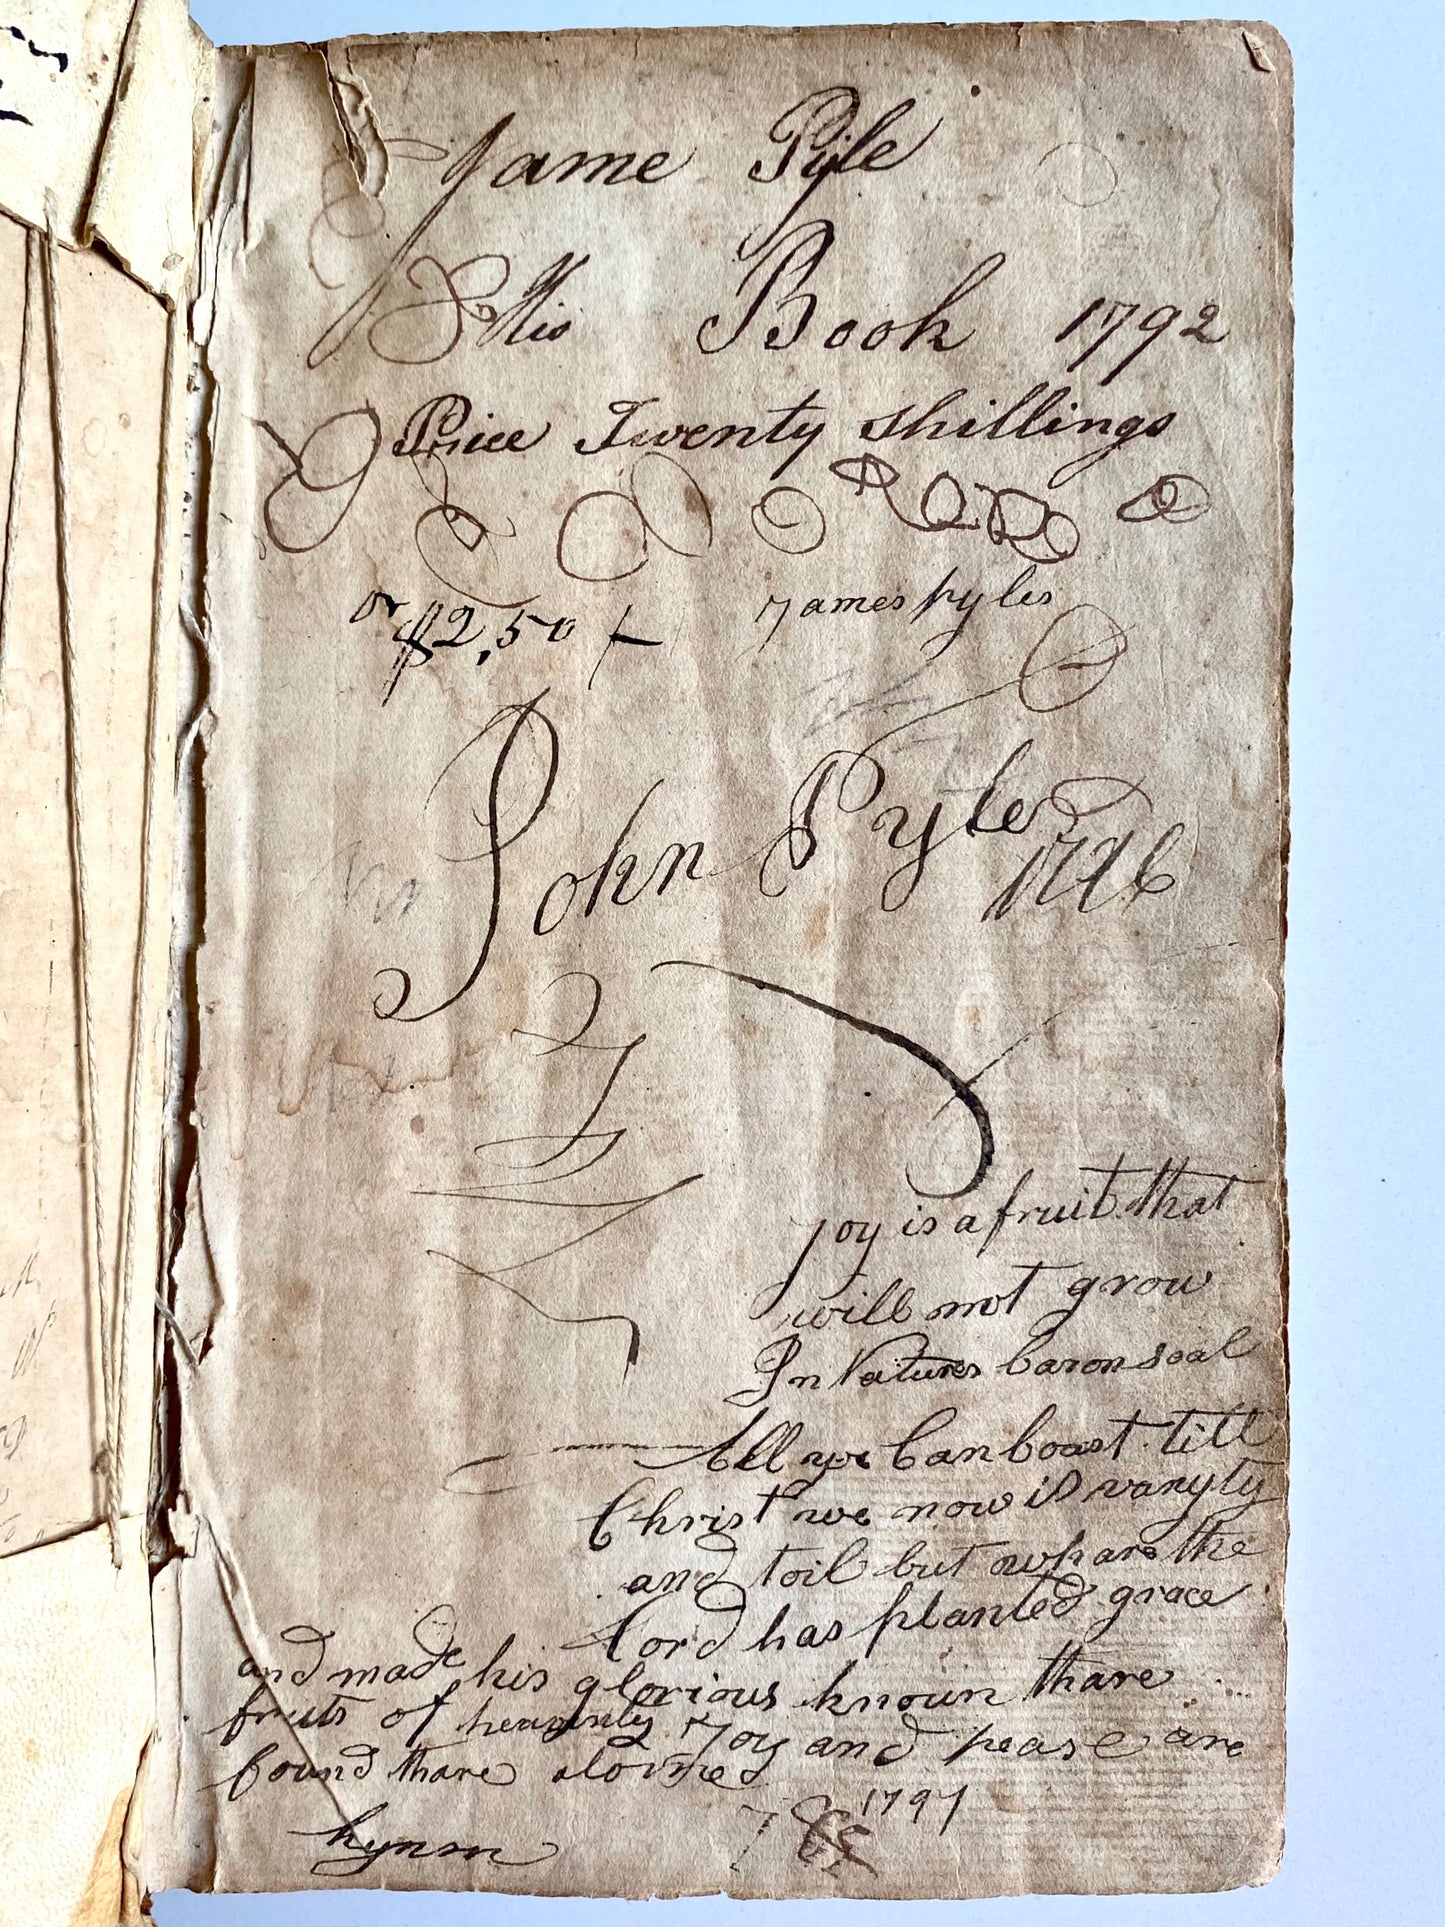 Jame Pyle
His Book 1792
Price Twenty shillings
or $2,50
James pyles
John Pyles
1796
Joy is a fruit that
will not grow
In Natures baron soal
All we Can boast till
Christ we now is vanyty
and toil but whare the
lord has planted grace
and made his glorious known thare
fruits of heavenly Joy and pease are
found thare alone
hymn
1797